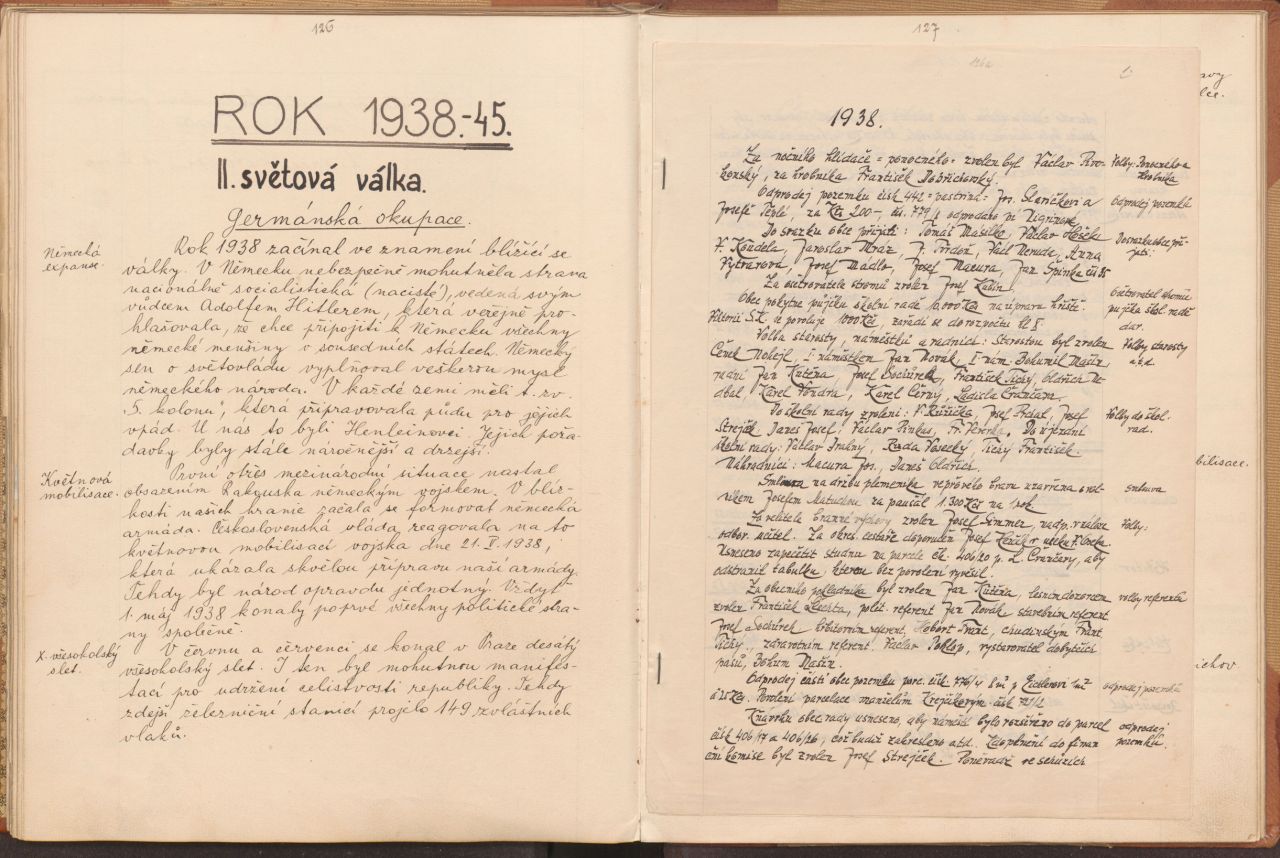 126
ROK 1938.-45.
II. světová válka.
Germánská okupace.
Německá
expanse.
Rok 1938 začínal ve znamení blížící se
války. V Německu nebezpečně mohutněla strana
nacionálně socialistická (nacisté), vedená svým
vůdcem Adolfem Hitlerem, která veřejně pro-
hlašovala, že chce připojiti k Německu všechny
německé menšiny v sousedních státech. Německý
sen o světovládu vyplňoval veškerou mysl
německého národa. V každé zemi měli t. zv.
"5. kolonu", která připravovala půdu pro jejich
vpád. U nás to byli Henleinovci. Jejich poža-
davky byly stále náročnější a drzejší.
Květnová
mobilisace.
První otřes mezinárodní situace nastal
obsazením Rakouska německým vojskem. V blíz-
kosti našich hranic začala se formovat německá
armáda. Československá vláda reagovala na to
květnovou mobilisací vojska dne 21. V. 1938,
která ukázala skvělou přípravu naší armády.
Tehdy byl národ opravdu jednotný. Vždyť
1. máj 1938 konaly poprvé všechny politické stra-
ny společně.
X. všesokolský
slet.
V červnu a červenci se konal v Praze desátý
všesokolský slet. I ten byl mohutnou manifes-
tací pro udržení celistvosti republiky. Tehdy
zdejší železniční stanicí projelo 149 zvláštních
vlaků.
127
126a
1938.
Za nočního hlídače = ponocného = zvolen byl Václav Pro-
konský, za hrobníka František Dobřichovský.
Volby: Ponocného a
hrobníka
Odprodej pozemku čísk 442 = pastvina = Jos. Slavíčkovi a
Josefě Teplé, za Kčs 200-, čís. 779/1 odprodáno
Odprodej pozemků
Do svazku obce přijati: Tomáš Masilko, Václav Hošek
V. Koudela, Jaroslav Mráz, J. Tvrdoň, Václ Neruda, Anna
Vytvarová, Josef Mádlo, Josef Macura, Jan Špinka čís 85
Do svazku obce při-
jati:
Za ošetřovatele stromů zvolen Josef
Ošetřovatel stromů
Obec poskytne půjčku školní radě 10.000 Kč na úpravu hřiště.
Viktorii S.K. se povoluje 1000 Kč, zařadí se do rozpočtu
půjčka škol. radě
dar.
Volba starosty, náměstků a radních: Starostou byl zvolen
Čeněk Nohejl, I. náměstkem Jan Novák, II. nám: Bohumil Mašín
radní Jan Kutěna, Josef Sochůrek, František Tichý, Oldřich Ne-
dbal, Karel Vondra, Karel Černý, Ladislav
Volby starosty
atd.
Do školní rady zvoleni: V. Růžička, Josef Josef
Strejček, Jareš Josef, Václav Pinkas, Fr. Peterka. Do újezdní
školní rady: Václav Vosecký, Tichý František.
Náhradníci: Macura Jos., Jareš Oldřich.
Volby do škol.
rad.
Smlouva na držbu plemeníka vepřového bravu uzavřena s rol-
níkem Josefem Matuchou za paušál 1.300 Kč na 1 rok.
smlouva
Za velitele branné výchovy zvolen Josef Simmer, nadp. v záloze
odbor. učitel. Za okres. cestáře doporučen Josef
Usneseno zapečetit studnu na parcele čís. 406/20 p. L. aby
odstranil tabulku, kterou bez povolení vyvěsil.
Volby:
Za obecního pokladníka byl zvolen Jan Kutěna, lesním dozorcem
zvolen František Šlechta, polit. referent Jan Novák stavebním referent
Josef Sochůrek, hřbitovním referent chudinským Frant
Tichý, zdravotním referent Václav Poklop, vystavovatel dobytčích
pasů, Bohum Mašín.
volby, referentů
Odprodej části obec pozemku parc. čísk. 776/4 8 m² p 1 m²
á 25 Kč. Povolení parcelace manželům Krejčíkovým čísk
odprodej pozemků
K návrhu obec rady usneseno, aby náměstí bylo rozšířeno do parcel
čísk 406/17 a 406/26, což budiž zakresleno atd. Zdoplnění do finan
ční komise byl zvolen Josef Strejček. Poněvadž ve schůzích
odprodej
pozemků.
bilisace.
ichov